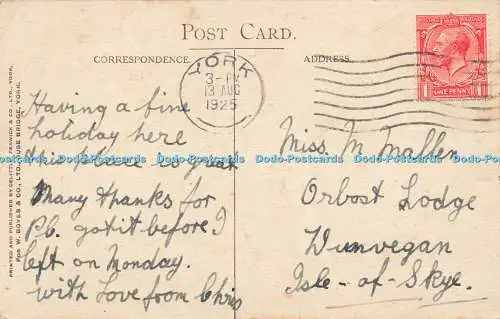 POST CARD.
CORRESPONDENCE.
ADDRESS.
YORK
3-PM
13 AUG
1925
POSTAGE REVENUE
ONE PENNY
Having a fine
holiday here
This place is great
Many thanks for
P.b. got it before I
left on Monday.
with Love from Chris
Miss. M. Mallen
Orbost Lodge
Dunvegan
Isle-of-Skye.
PRINTED AND PUBLISHED BY DELITTLE, FENWICK & CO., LTD., YORK,
FOR W. BOYES & CO., LTD., OUSE BRIDGE, YORK.
Dodo-Postcards Dodo-Postcards Dodo-Postcards Dodo-Postcards Dodo-Postcards Dodo-Postcards